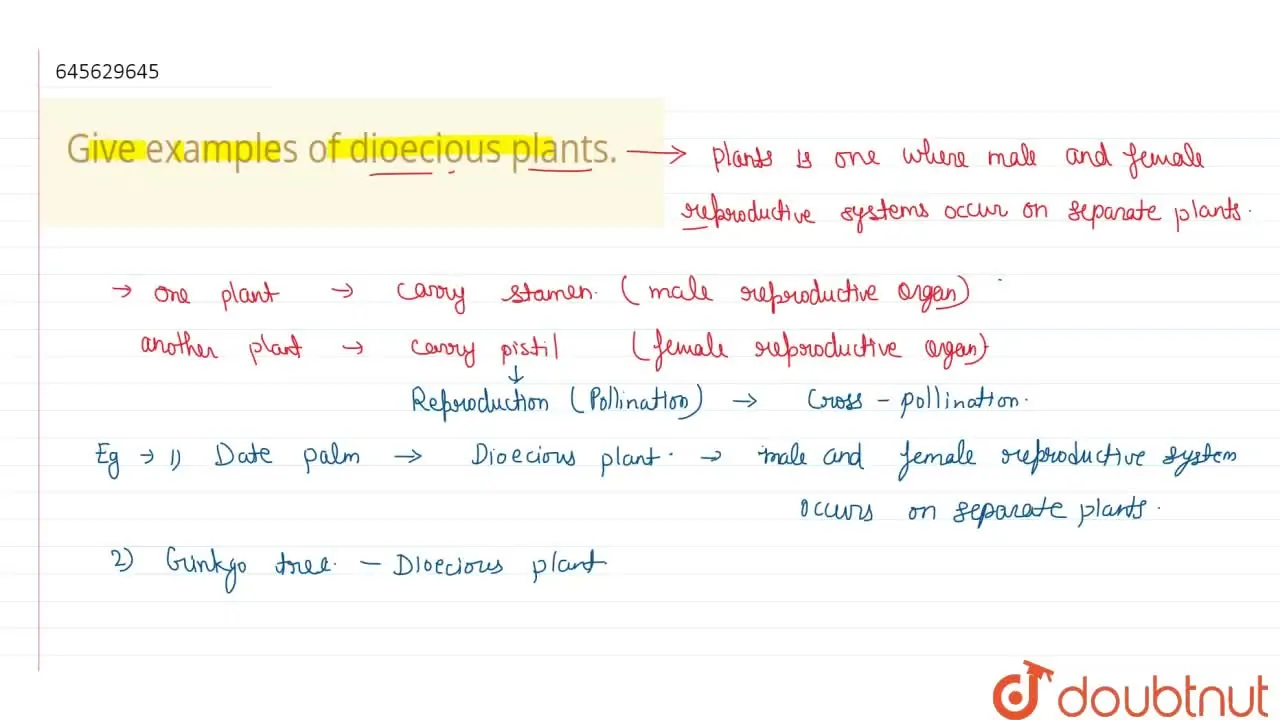 645629645
Give examples of dioecious plants. → plants is one where male and female
reproductive systems occur on separate plants.
→ one plant → carry stamen. (male reproductive organ)
another plant → carry pistil (female reproductive organ)
↓
Reproduction (Pollination) → Cross-pollination.
Eg → 1) Date palm → Dioecious plant. → male and female reproductive system
occurs on separate plants.
2) Ginkgo tree. - Dioecious plant
doubtnut